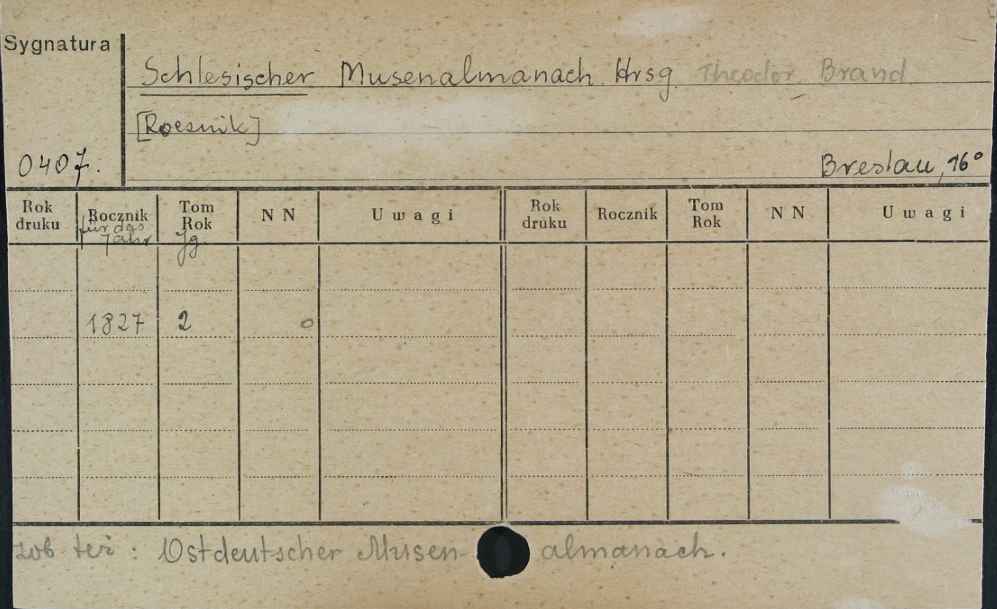 Sygnatura
Schlesischer Musenalmanach. Hrsg. Theodor Brand
[Rocznik]
0407.
Breslau, 16°
Rok druku Rocznik Tom Rok NN Uwagi Rok druku Rocznik Tom Rok NN Uwagi
für das Jahr Jg
1827 2
zob też: Ostdeutscher Musen-almanach.